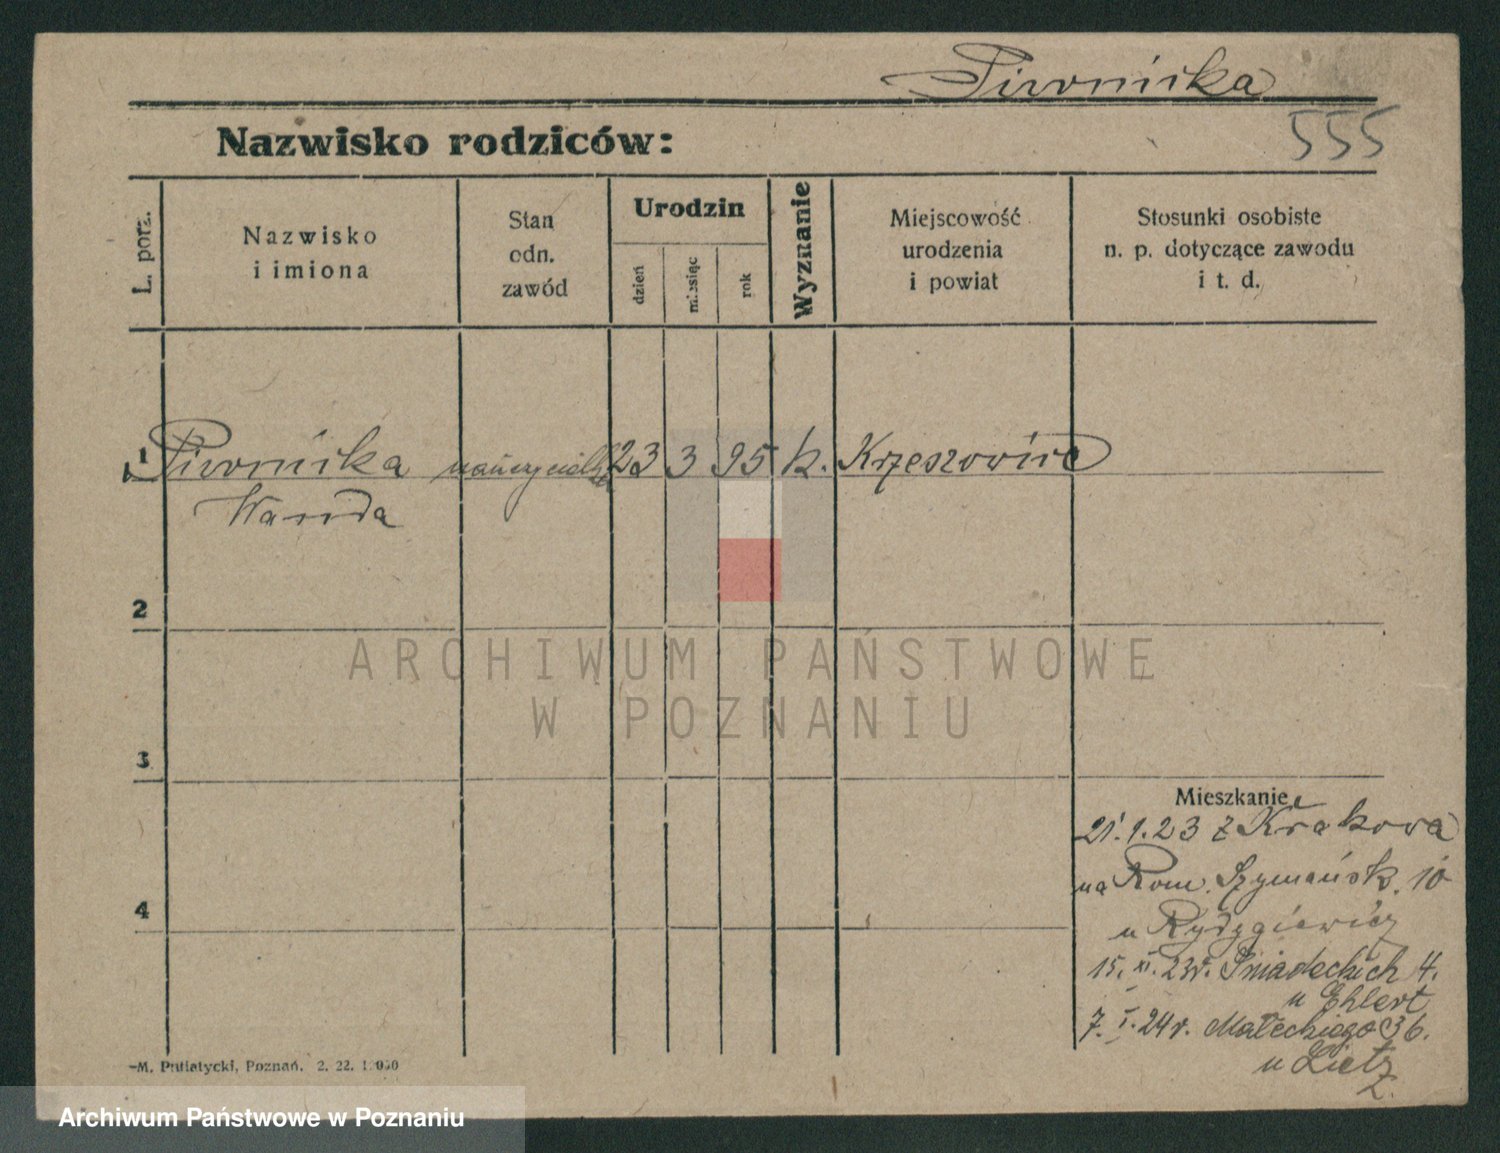 Piwonicka
555
Nazwisko rodziców:
L. porz.
Nazwisko
i imiona
Stan
odn.
zawód
Urodzin
dzień
miesiąc
rok
Wyznanie
Miejscowość
urodzenia
i powiat
Stosunki osobiste
n. p. dotyczące zawodu
i t. d.
1
Piwonicka nauczycielka 23 3 95 k. Krzeszowice
Wanda
2
ARCHIWUM PAŃSTWOWE
W POZNANIU
3
4
Mieszkanie
21.1.23 z Krakowa
na Rom. Szymańsk. 10
u Rydygiewicz
15. XI. 23r. Śniadeckich 4.
u Ehlert
7. I. 24r. Małeckiego 36.
u Lietz
M. Putiatycki, Poznań. 2. 22.
Archiwum Państwowe w Poznaniu